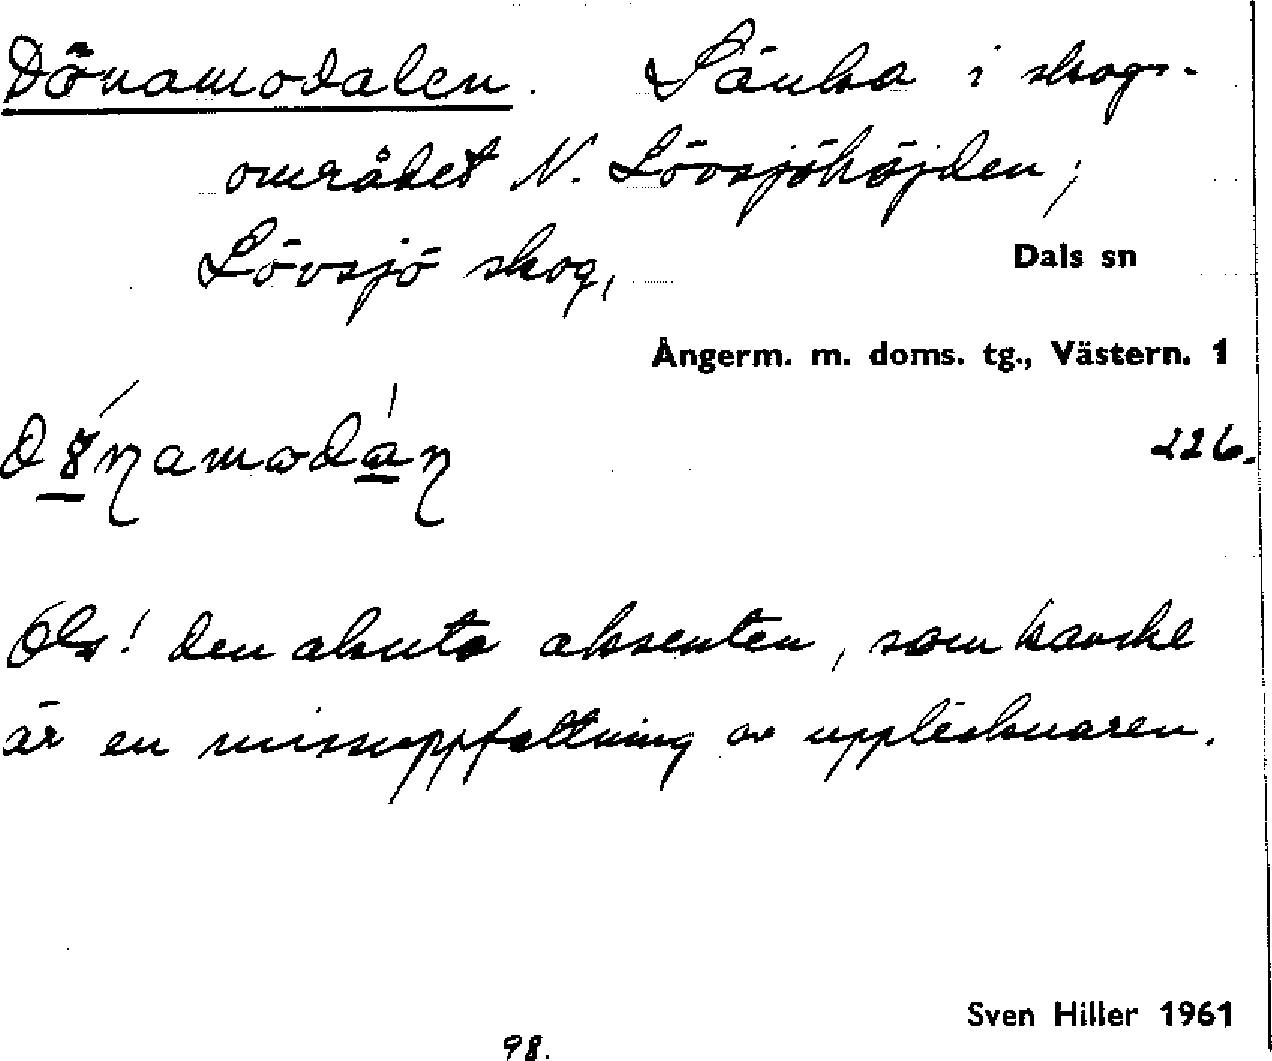 Dönamodalen. Sänka i skogs-
området N. Lövsjöhöjden;
Lövsjö skog, Dals sn
Ångerm. m. doms. tg., Västern. 1
226.
Obs! den akuta aksenten, som kanske
är en missuppfattning av uppteknaren.
Sven Hiller 1961
98.